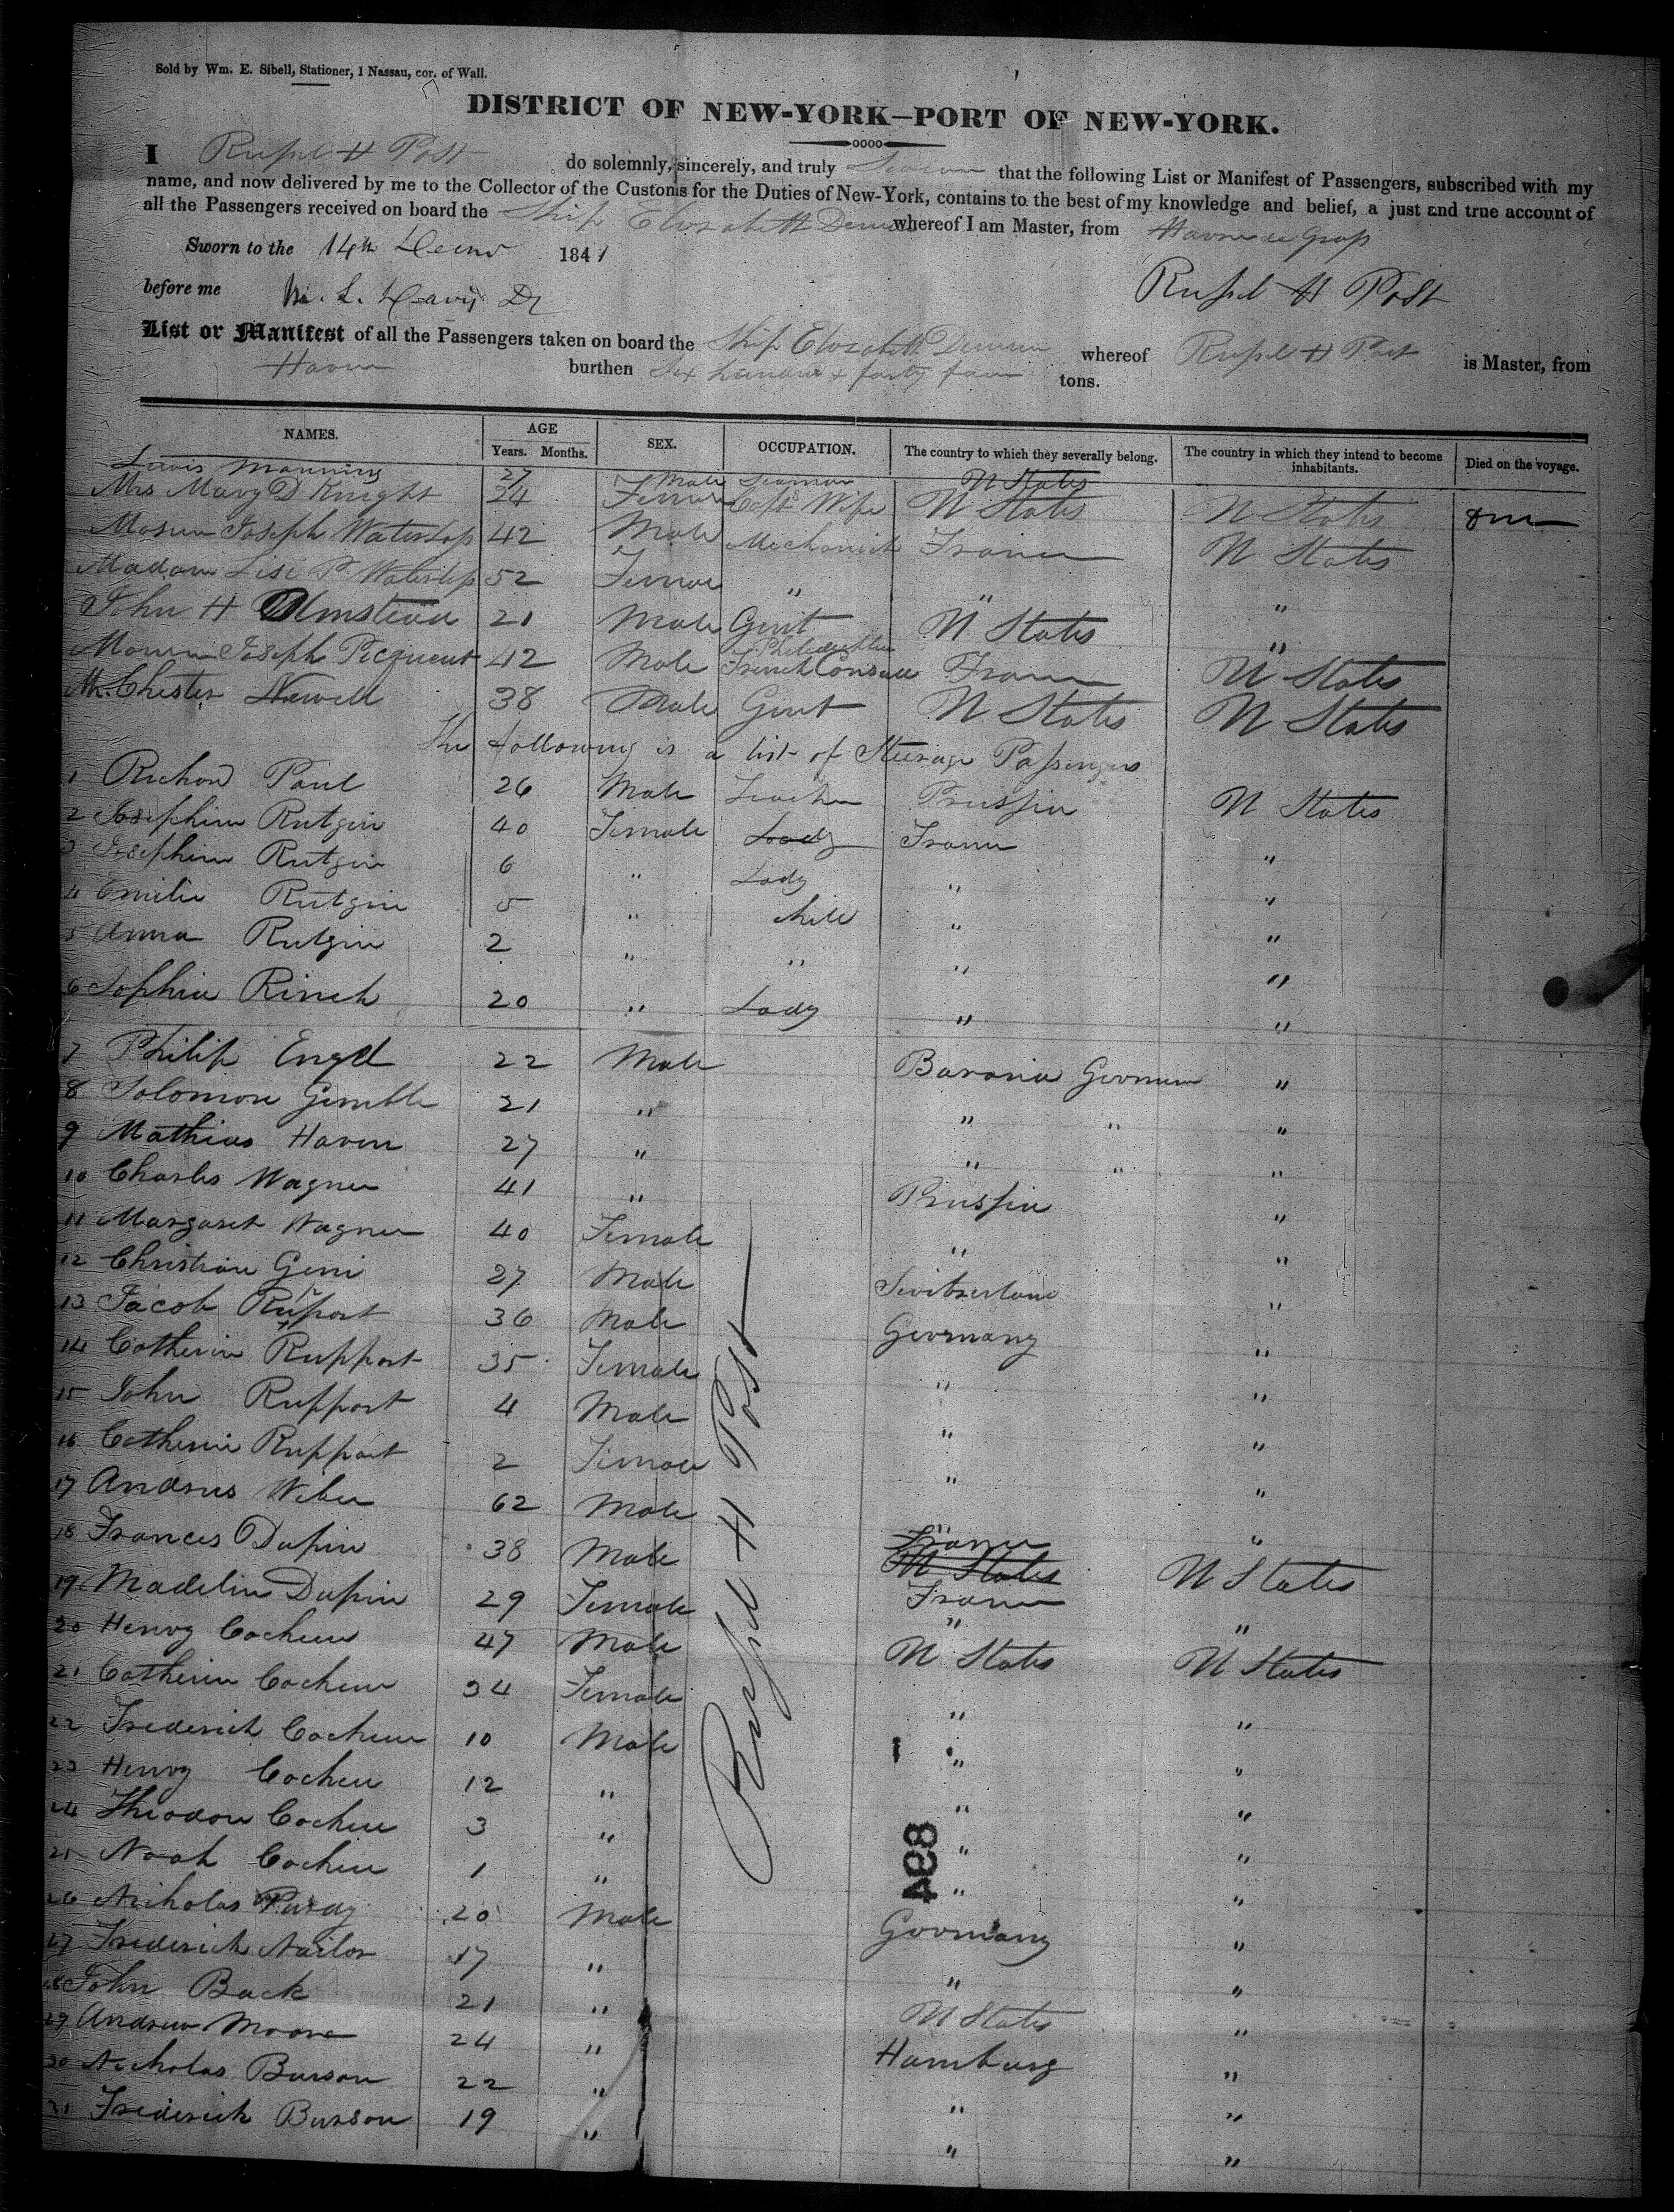 Sold by Wm. E. Sibell, Stationer, 1 Nassau, cor. of Wall.
DISTRICT OF NEW-YORK—PORT OF NEW-YORK.
I Russel H Post do solemnly, sincerely, and truly that the following List or Manifest of Passengers, subscribed with my
name, and now delivered by me to the Collector of the Customs for the Duties of New-York, contains to the best of my knowledge and belief, a just and true account of
all the Passengers received on board the Ship Elizabeth Denison whereof I am Master, from Havre de Grass
Sworn to the 14th 1841
before me Russel H Post
List or Manifest of all the Passengers taken on board the Ship Elizabeth Denison whereof Russel H Post is Master, from
Havre burthen Six hundred & forty four tons.
NAMES. AGE SEX. OCCUPATION. The country to which they severally belong. The country in which they intend to become inhabitants. Died on the voyage.
Years. Months.
Lewis Manning 27 Male Seaman U States
Mrs Mary D Knight 24 Female Capts Wife U States U States
Joseph Waterlop 42 Male Mechanick France U States
Madam P Waterlop 52 Female " " "
John H Olmstead 21 Male Gent U States "
Philadelphia
Joseph 42 Male French Consul France U States
Mr. Chester Newell 38 Male Gent U States U States
The following is a list of Steerage Passengers
1 Richard Paul 26 Male Teacher Prussia U States
2 Josephine Rutgin 40 Female Lady France "
3 Josephine Rutgin 6 " Lady " "
4 Emilie Rutgin 5 " child " "
5 Anna Rutgin 2 " " " "
6 Sophia Rinch 20 " Lady " "
7 Philip Engel 22 Male Bavaria Germany "
8 Solomon Gimble 21 " " " "
9 Mathias Haven 27 " " " "
10 Charles Wagner 41 " Prussia "
11 Margaret Wagner 40 Female " "
12 Christian 27 Male Switzerland "
13 Jacob Ruppart 36 Male Germany "
14 Catherine Ruppart 35 Female " "
15 John Ruppart 4 Male " "
16 Catherine Ruppart 2 Female " "
17 Andrus Weber 62 Male " "
18 Frances Dupin 38 Male France U States U States
19 Madeline Dupin 29 Female France "
20 Henry Cocheu 47 Male U States U States
21 Catherine Cocheu 34 Female " "
22 Frederick Cocheu 10 Male " "
23 Henry Cocheu 12 " " "
24 Theodore Cocheu 3 " " "
25 Noah Cocheu 1 " " "
26 Nicholas Purdy 20 Male Germany "
27 Frederick Nailor 17 " " "
28 John Back 21 " U States "
29 Andrew Moore 24 " Hamburg "
30 Nicholas Burson 22 " " "
31 Frederick Burson 19 " " "
Russel H Post
884